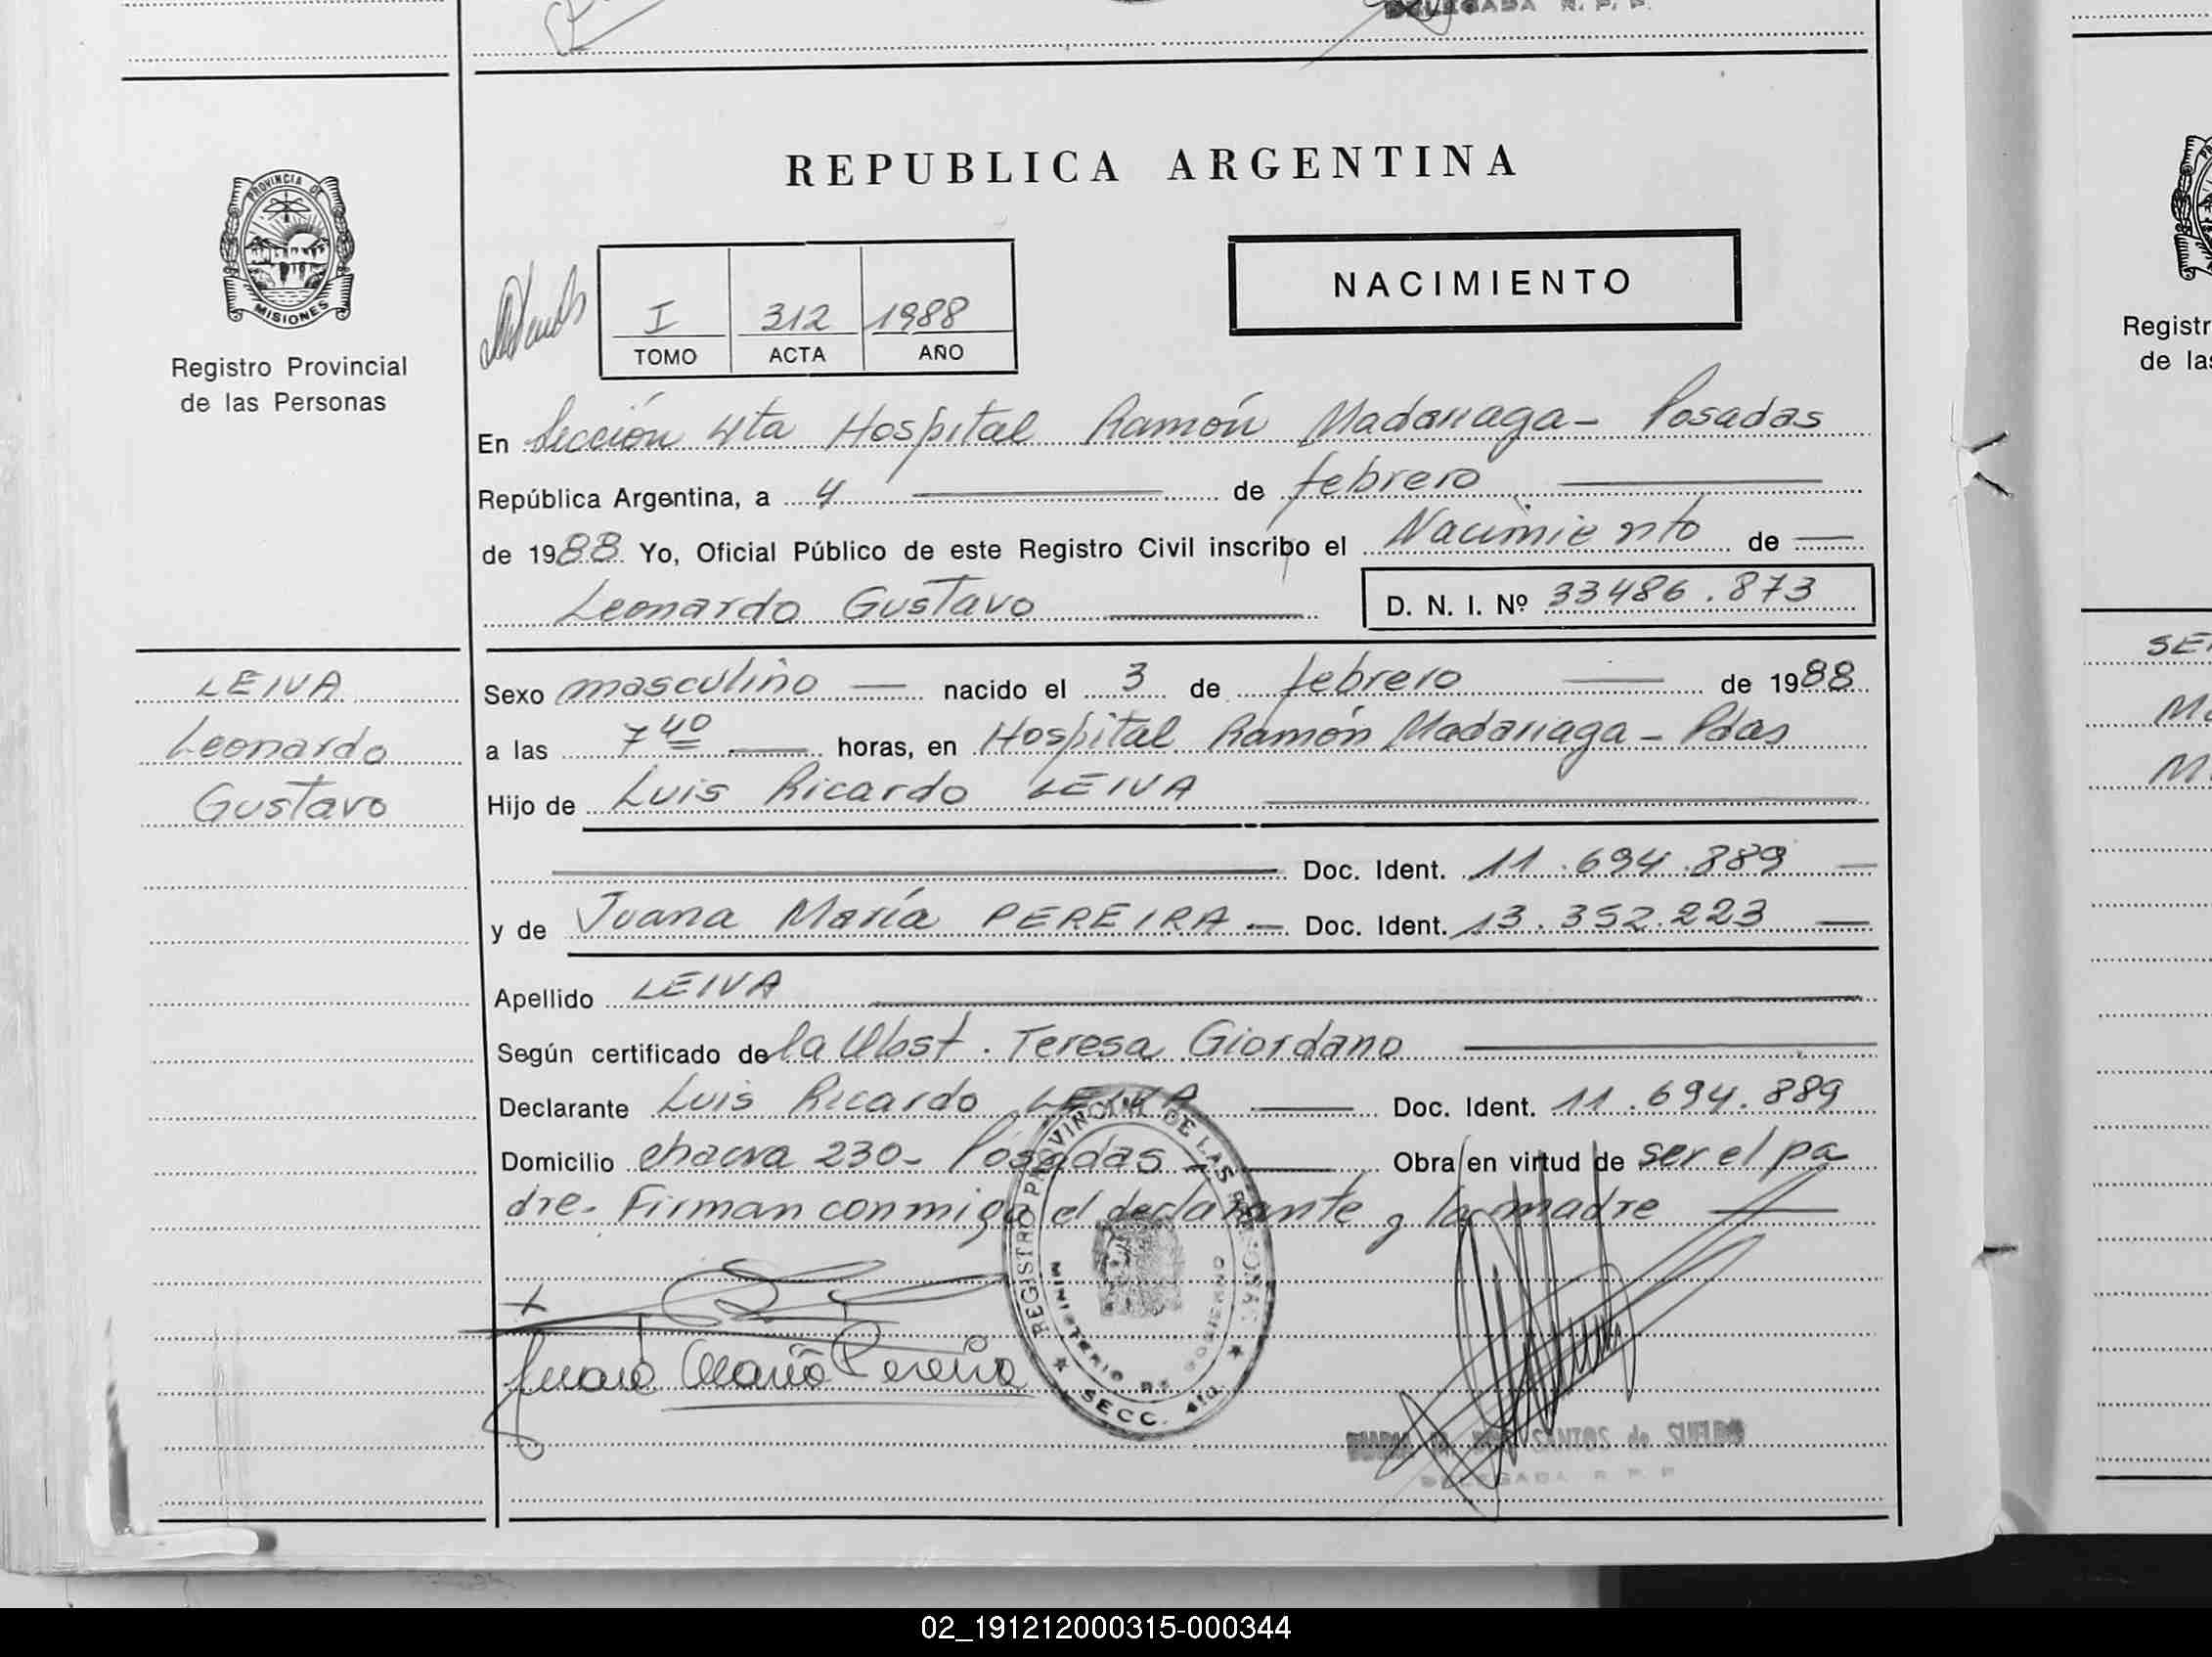 DELEGADA R. P. P.
REPUBLICA ARGENTINA
PROVINCIA DE
MISIONES
Registro Provincial
de las Personas
I 312 1988
TOMO ACTA AÑO
NACIMIENTO
En Sección 4ta Hospital Ramón Madariaga - Posadas
República Argentina, a 4 de febrero
de 1988 Yo, Oficial Público de este Registro Civil inscribo el Nacimiento de
Leonardo Gustavo D. N. I. Nº 33486.873
LEIVA
Leonardo
Gustavo
Sexo masculino nacido el 3 de febrero de 1988
a las 7 40 horas, en Hospital Ramón Madariaga - Pdas
Hijo de Luis Ricardo LEIVA
Doc. Ident. 11.694.889
y de Juana María PEREIRA Doc. Ident. 13.352.223
Apellido LEIVA
Según certificado de la Obst. Teresa Giordano
Declarante Luis Ricardo LEIVA Doc. Ident. 11.694.889
Domicilio chacra 230 - Posadas - Obra en virtud de ser el pa
dre. Firman conmigo el declarante y la madre
REGISTRO PROVINCIAL DE LAS PERSONAS
MINISTERIO DE
SECC. 4ta
Juana María Pereira
SANTOS de
DELEGADA R. P. P.
Registr
de las
SE
M
02_191212000315-000344